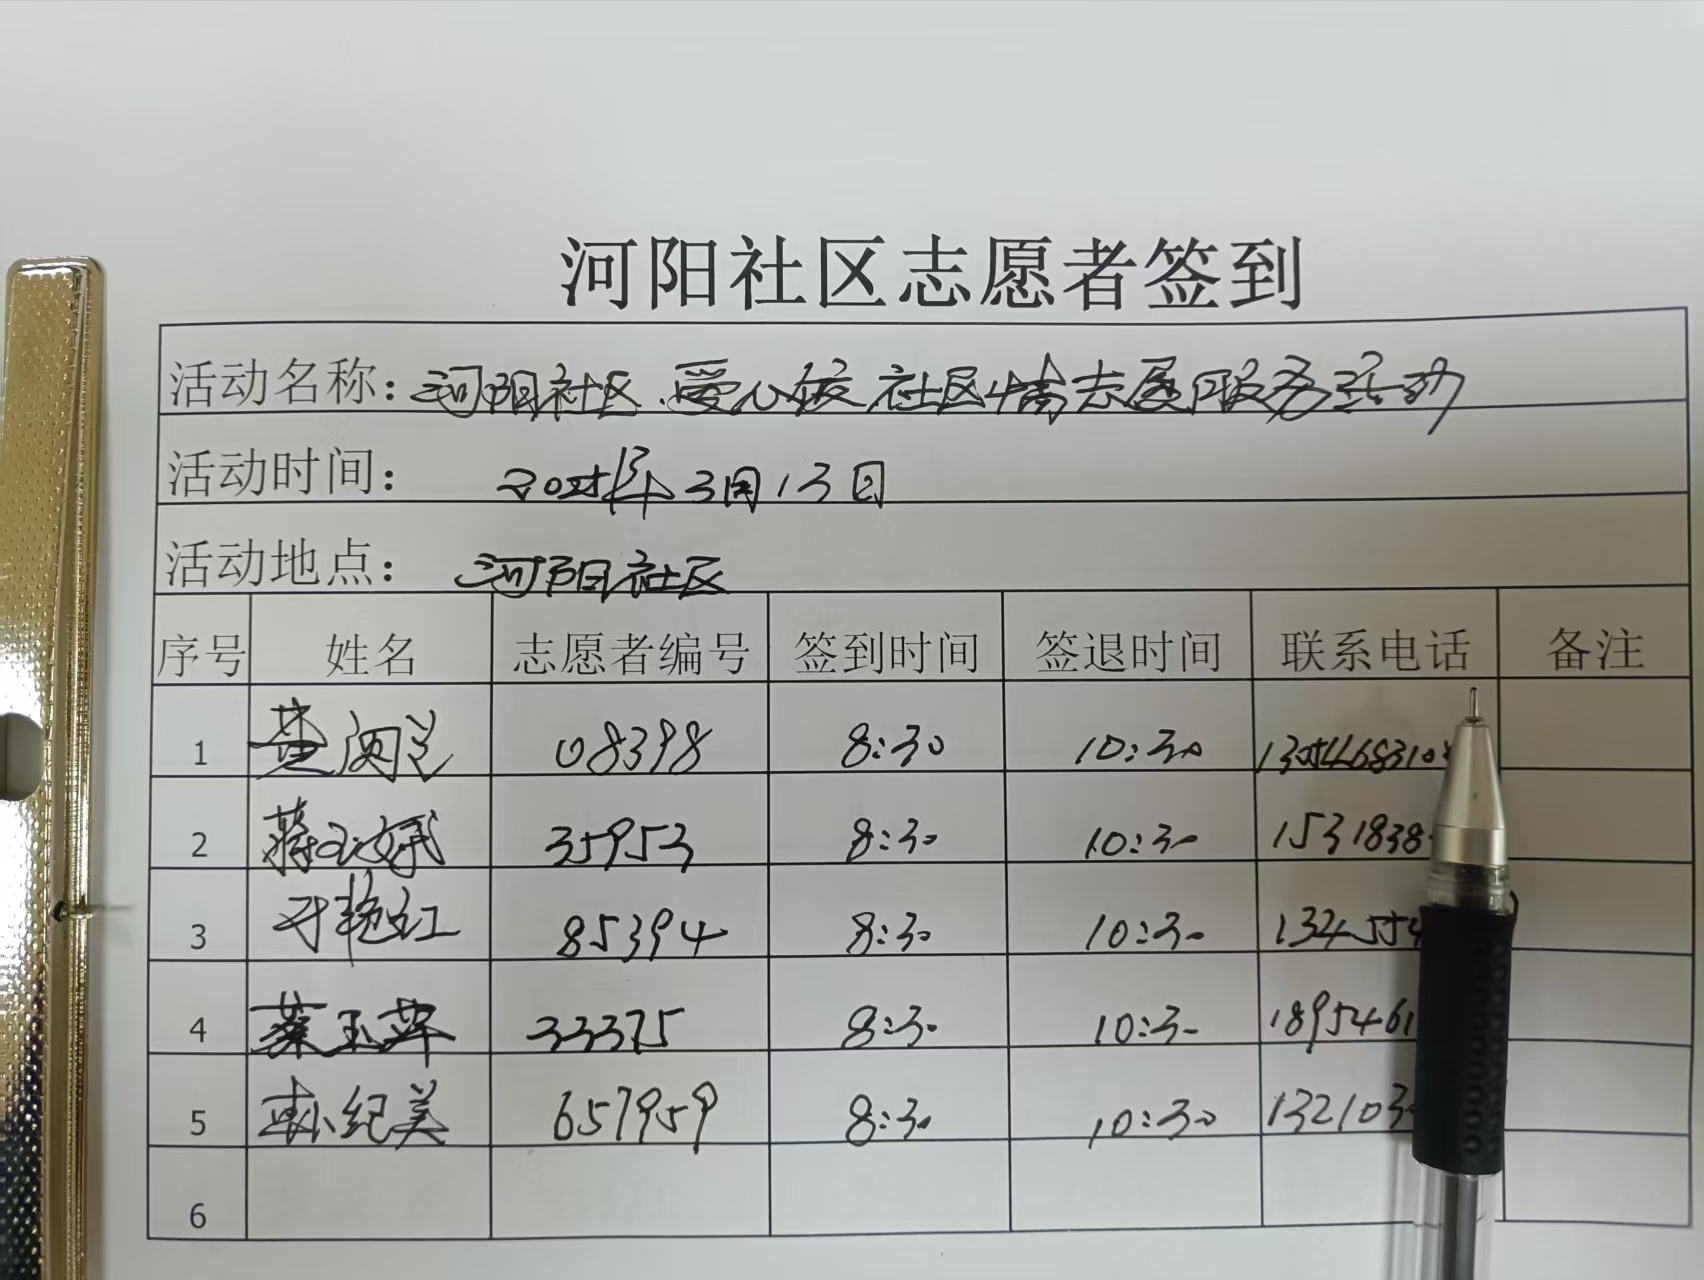 河阳社区志愿者签到
活动名称：河阳社区.爱心暖社区情志愿服务活动
活动时间： 2025年3月13日
活动地点： 河阳社区
序号 姓名 志愿者编号 签到时间 签退时间 联系电话 备注
1 08398 8:30 10:30 1305468310
2 蒋玉娥 35953 8:30 10:30 1531838
3 艳红 85394 8:30 10:30 1324554
4 蔡玉萍 33375 8:30 10:30 1895461
5 孙纪美 657959 8:30 10:30 132103
6